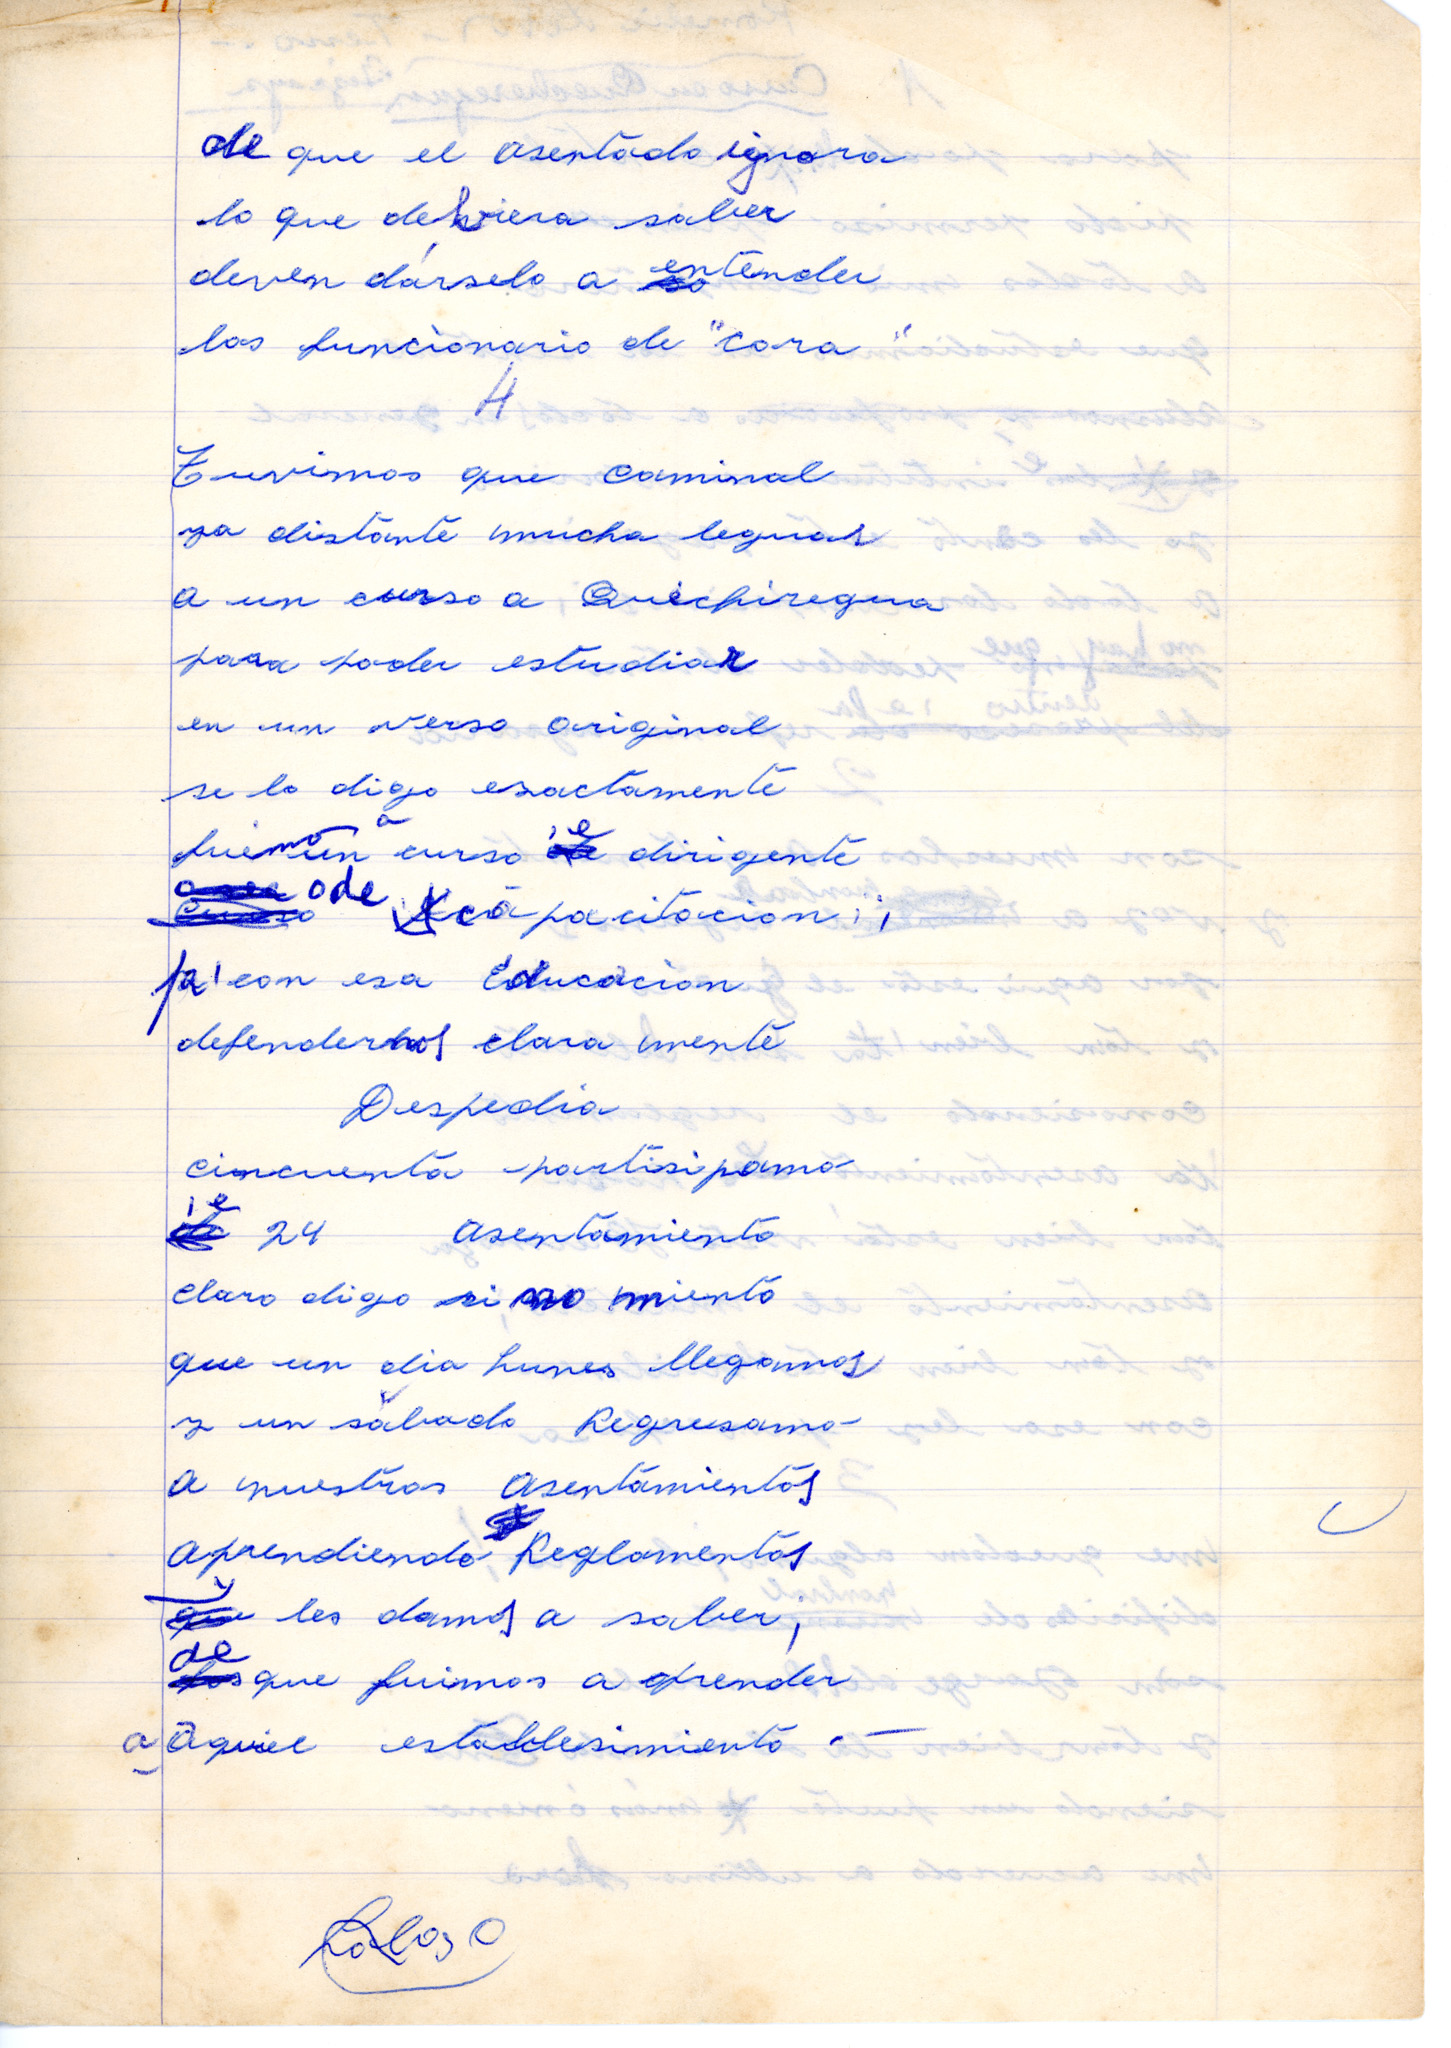 de que el asentado ignora
lo que debiera saber
deven dárselo a entender
los funcionario de "Cora"
4
Tuvimos que caminal
ya distante mucha leguas
a un curso a Quechiregua
para poder estudiar
en un verso original
se lo digo esactamente
fuimo a un curso 'e dirigente
o de capacitacion;
pa' con esa Educacion
defendernos clara mente
Despedia
cincuenta partisipamo
'e 24 asentamiento
claro digo si no miento
que un dia Lunes llegamos
y un sábado Regresamo
a nuestros asentamientos
aprendiendo Reglamentos
y les damos a saber;
de que fuimos a aprender
a aquel establesimiento .-